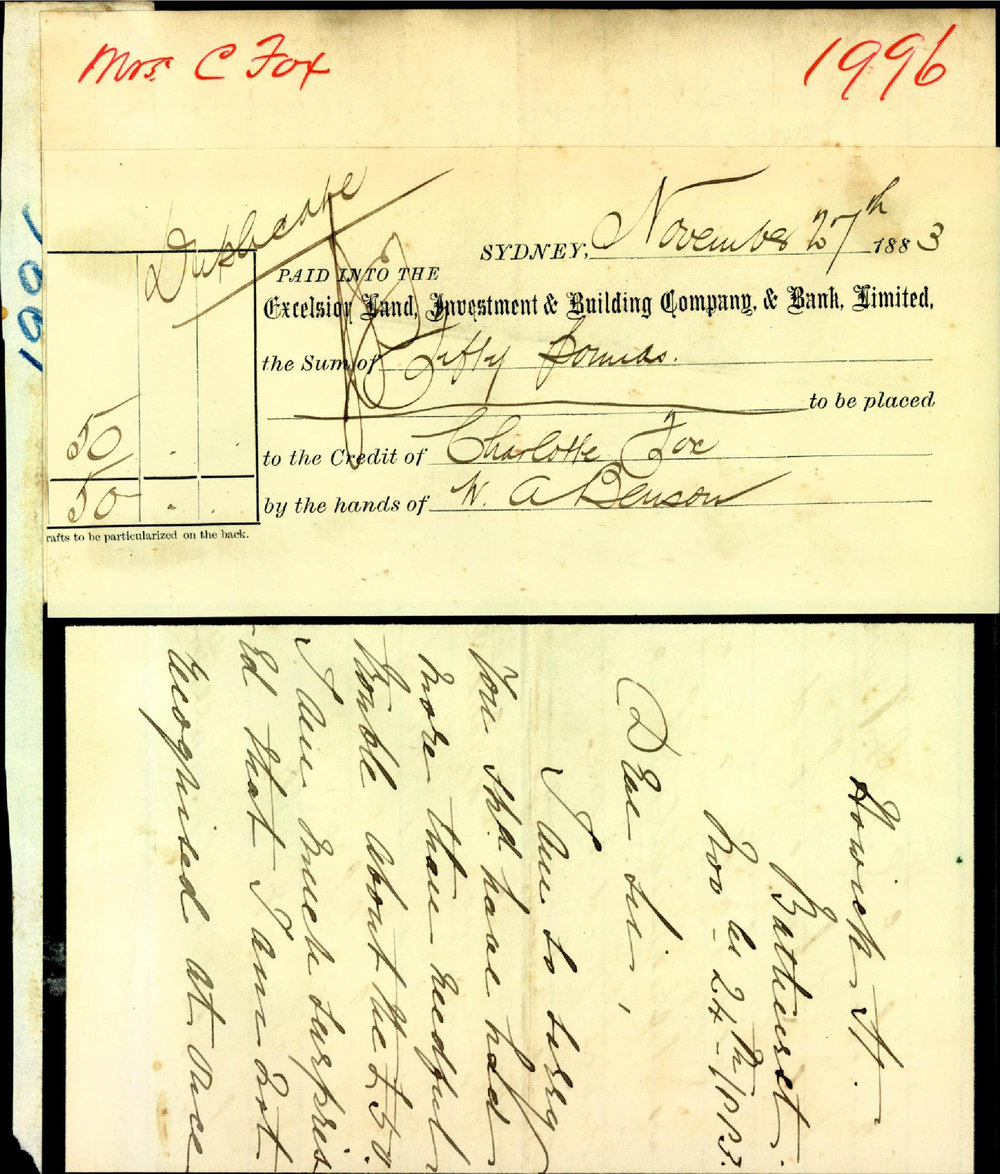 Mrs. C Fox
1996
1991
Duplicate
SYDNEY, November 27th 1883
PAID INTO THE
Excelsior Land, Investment & Building Company, & Bank, Limited,
the Sum of Fifty Pounds.
to be placed
50 . .
to the Credit of Charlotte Fox
50 . .
by the hands of W. A Benson
rafts to be particularized on the back.
Howick St.
Bathurst
24th 1883.
Dear Sir,
I am so sorry
You shd. have had
more than needful
trouble about the £50.
I am much surpris
-Ed that I am not
recognised at once